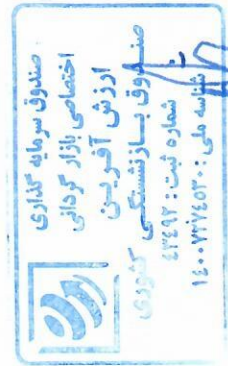 صندوق سرمایه گذاری
اختصاصی بازار گردانی
ارزش آفرین
صندوق بازنشستگی
کشوری
شماره ثبت: ۴۳۴۹۲
شناسه ملی: ۱۴۰۰۷۲۷۴۵۳۰